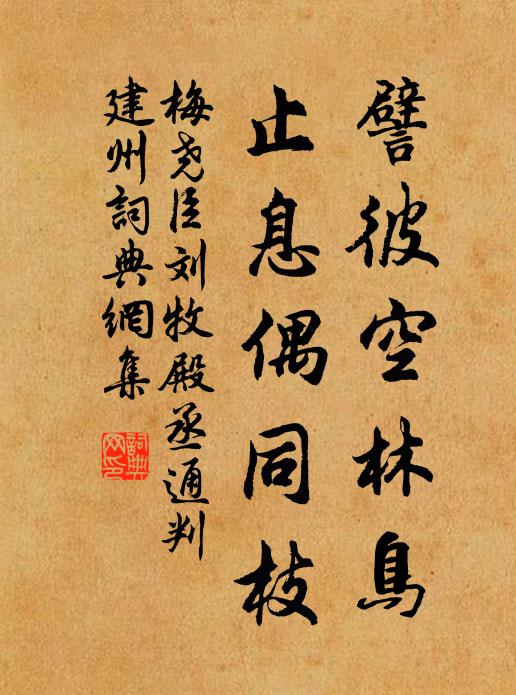 譬彼空林鳥
止息偶同枝
梅尧臣刘牧殿丞通判
建州詞典網集
詞典
网印